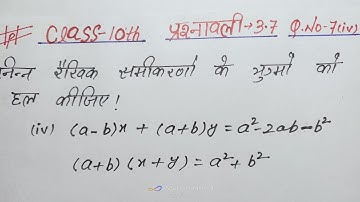 Class-10th प्रश्नावली→3.7 Q.No-7(iv)
निम्न रैखिक समीकरणों के युग्मों को
हल कीजिए!
(iv) (a-b)x + (a+b)y = a²-2ab-b²
(a+b) (x+y) = a²+b²